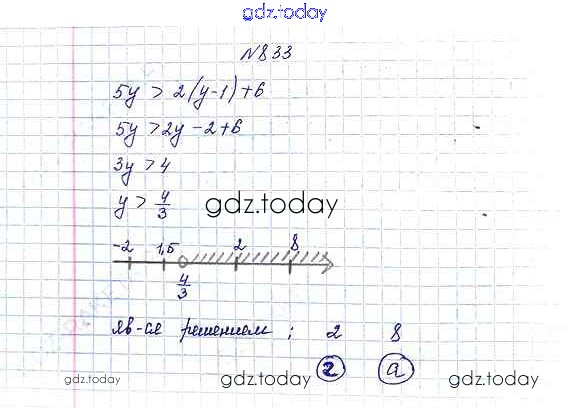 gdz.today
№833
5y > 2(y-1)+6
5y > 2y -2+6
3y > 4
y > 4/3
gdz.today
-2 1,5 2 8
4/3
яв-ся решением : 2 8
г а
gdz.today gdz.today gdz.today